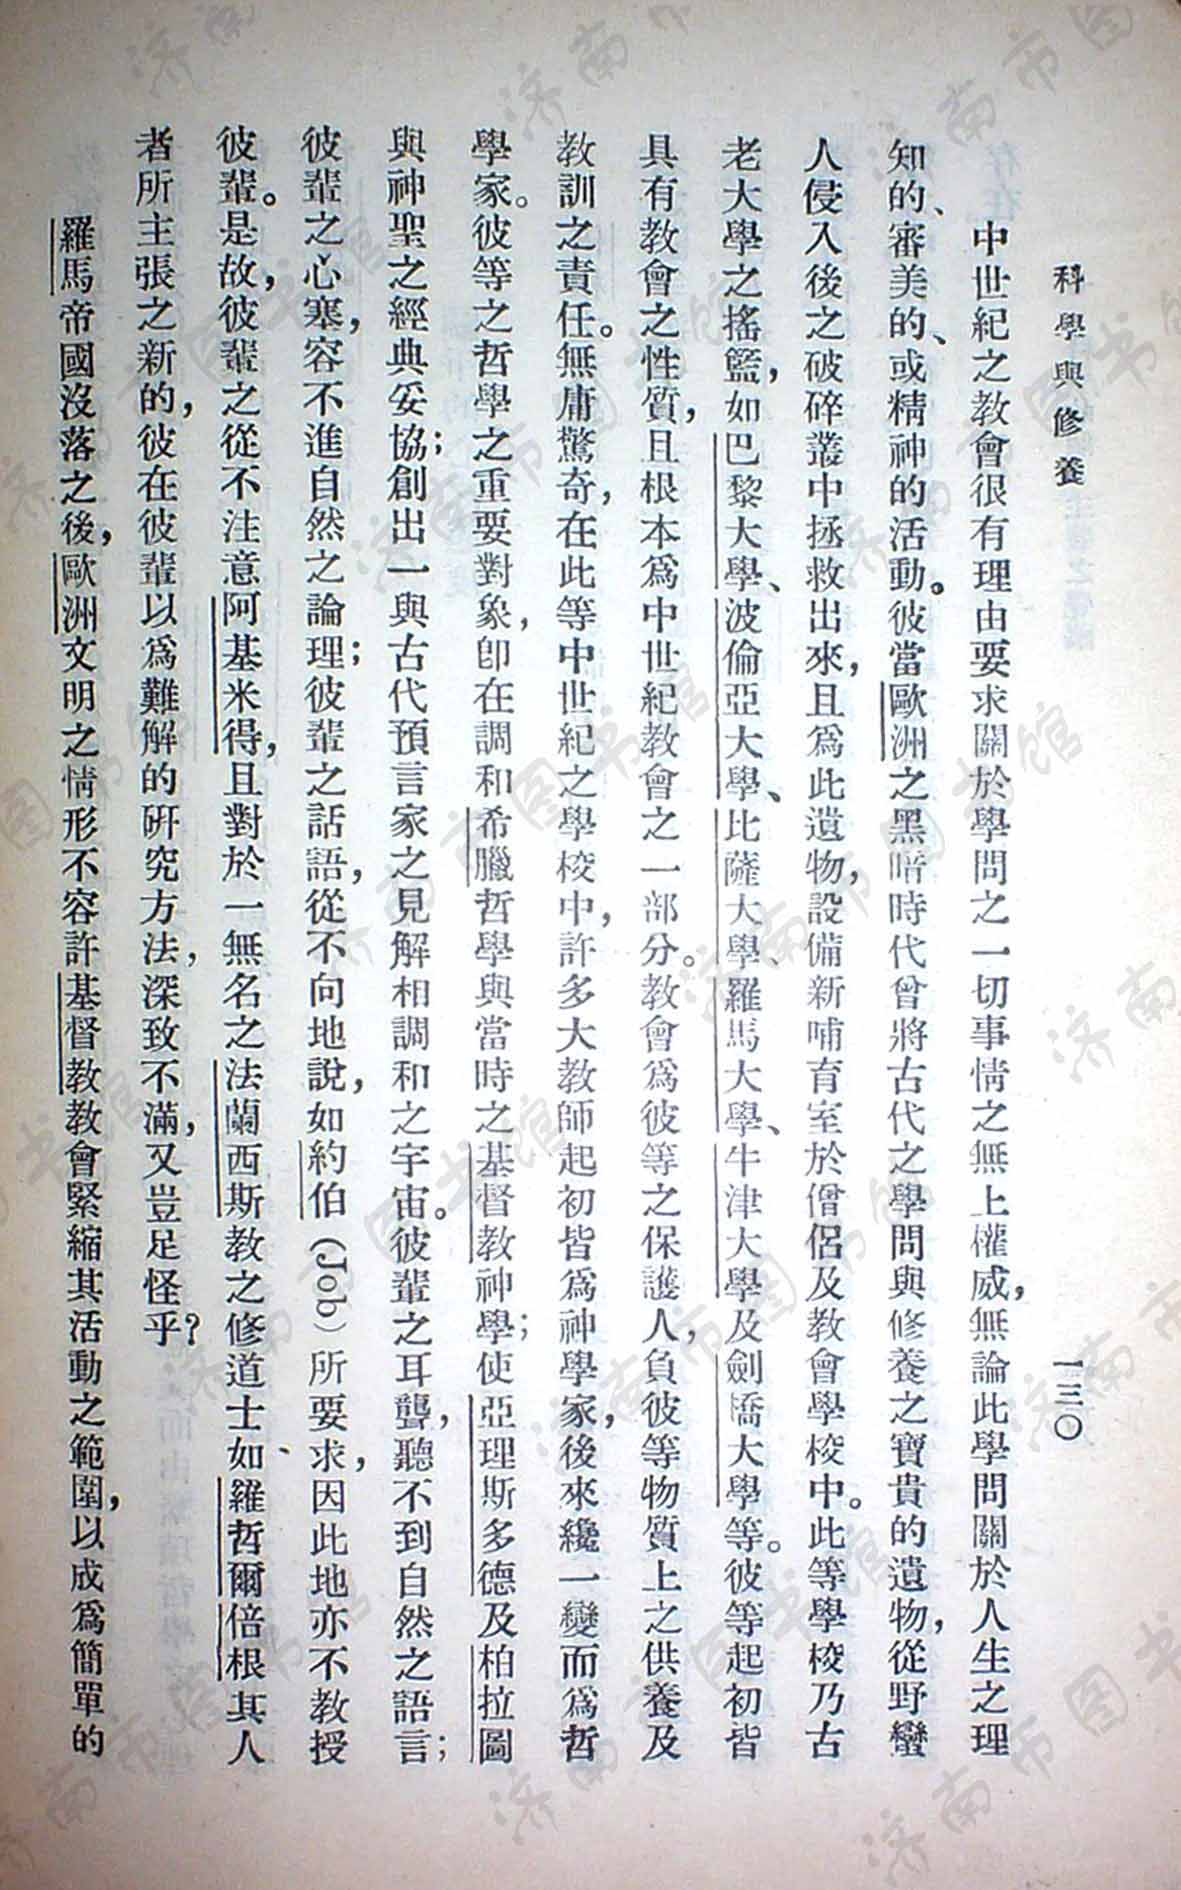 科學與修養
一三〇
中世紀之教會很有理由要求關於學問之一切事情之無上權威，無論此學問關於人生之理
知的、審美的、或精神的活動。彼當歐洲之黑暗時代曾將古代之學問與修養之寶貴的遺物，從野蠻
人侵入後之破碎叢中拯救出來，且爲此遺物，設備新哺育室於僧侶及教會學校中。此等學校乃古
老大學之搖籃，如巴黎大學、波倫亞大學、比薩大學、羅馬大學、牛津大學及劍橋大學等。彼等起初皆
具有教會之性質，且根本爲中世紀教會之一部分。教會爲彼等之保護人，負彼等物質上之供養及
教訓之責任。無庸驚奇，在此等中世紀之學校中，許多大教師起初皆爲神學家，後來纔一變而爲哲
學家。彼等之哲學之重要對象，卽在調和希臘哲學與當時之基督教神學；使亞理斯多德及柏拉圖
與神聖之經典妥協；創出一與古代預言家之見解相調和之宇宙。彼輩之耳聾，聽不到自然之語言；
彼輩之心塞，容不進自然之論理；彼輩之話語，從不向地說，如約伯（Job）所要求，因此地亦不教授
彼輩。是故，彼輩之從不注意阿基米得，且對於一無名之法蘭西斯教之修道士如、羅哲爾倍根其人
者所主張之新的，彼在彼輩以爲難解的研究方法，深致不滿，又豈足怪乎？
羅馬帝國沒落之後，歐洲文明之情形不容許基督教教會緊縮其活動之範圍，以成爲簡單的